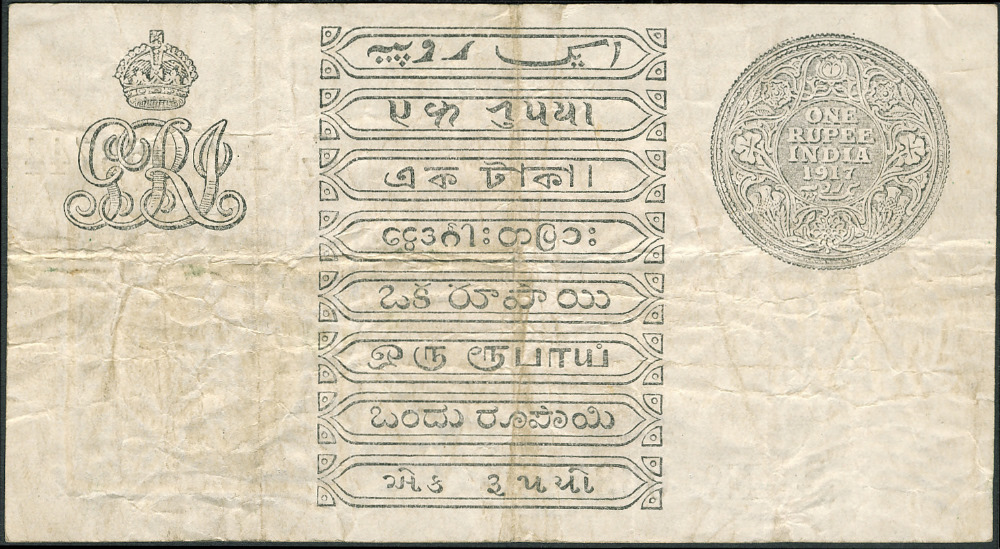 GRI
ایک روپیہ
𑂉𑂍 𑂩𑂳𑂣𑂨𑂰
এক টাকা।
ငွေဒင်္ဂါး တပြား
ఒక రూపాయి
ஒரு ரூபாய்
ಒಂದು ರೂಪಾಯಿ
એક રૂપયો
ONE
RUPEE
INDIA
1917